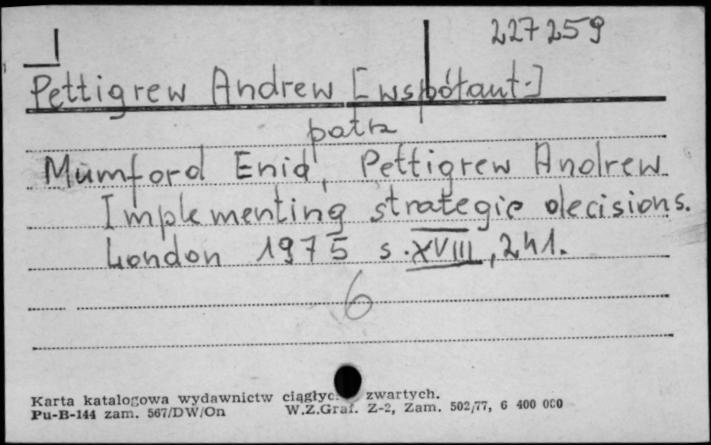 227259
Pettigrew Andrew [współaut.]
patrz
Mumford Enid, Pettigrew Andrew
Implementing strategic decisions.
London 1975 s. XVIII, 241.
6
Karta katalogowa wydawnictw ciągłyc. zwartych.
Pu-B-144 zam. 567/DW/On W.Z.Graf. Z-2, Zam. 502/77, 6 400 000